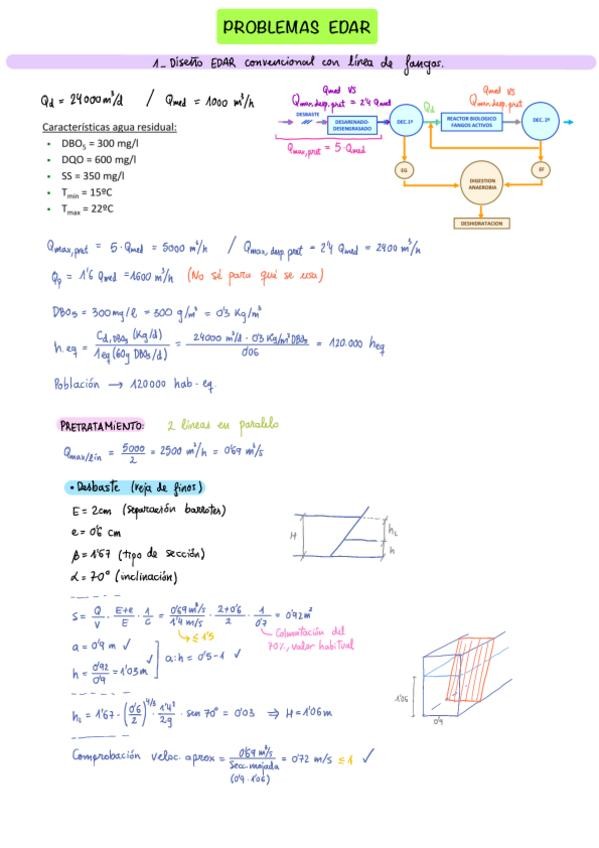 PROBLEMAS EDAR
1_ Diseño EDAR convencional con línea de fangos.
Qd = 24000 m³/d / Qmed = 1000 m³/h
Características agua residual:
• DBO₅ = 300 mg/l
• DQO = 600 mg/l
• SS = 350 mg/l
• Tmin = 15ºC
• Tmax = 22ºC
Qmed VS
Qmax,desp.pret = 2'4 Qmed
DESBASTE
DESARENADO-
DESENGRASADO
DEC.1º
Qd
Qmed VS
Qmax,desp.pret
REACTOR BIOLOGICO
FANGOS ACTIVOS
DEC. 2º
Qmax,pret = 5·Qmed
EG
EF
DIGESTION
ANAEROBIA
DESHIDRATACION
Qmax,pret = 5·Qmed = 5000 m³/h / Qmax, desp pret = 2'4 Qmed = 2400 m³/h
Qp = 1'6 Qmed = 1600 m³/h (No sé para qué se usa)
DBO₅ = 300 mg/l = 300 g/m³ = 0'3 Kg/m³
h.eq = Cd,DBO₅ (Kg/d) / 1 eq (60g DBO₅/d) = 24000 m³/d · 0'3 Kg/m³ DBO₅ / 0'06 = 120.000 heq
Población → 120000 hab-eq.
PRETRATAMIENTO: 2 líneas en paralelo
Qmax/lin = 5000 / 2 = 2500 m³/h = 0'69 m³/s
• Desbaste (reja de finos)
E = 2cm (separación barrotes)
e = 0'6 cm
β = 1'67 (tipo de sección)
α = 70° (inclinación)
H
hL
h
S = Q/V · E+e/E · 1/C = 0'69 m³/s / 1'4 m/s · 2+0'6 / 2 · 1/0'7 = 0'92 m²
≤ 1'5
Colmatación del
70%, valor habitual
a = 0'9 m ✓
h = 0'92 / 0'9 = 1'03 m
a:h = 0'5-1 ✓
hL = 1'67 · (0'6/2)^4/3 · 1'4²/2g · sen 70° = 0'03 ⇒ H = 1'06 m
1'06
0'9
Comprobación veloc. aprox = 0'69 m³/s / Secc. mojada (0'9·1'06) = 0'72 m/s ≤ 1 ✓